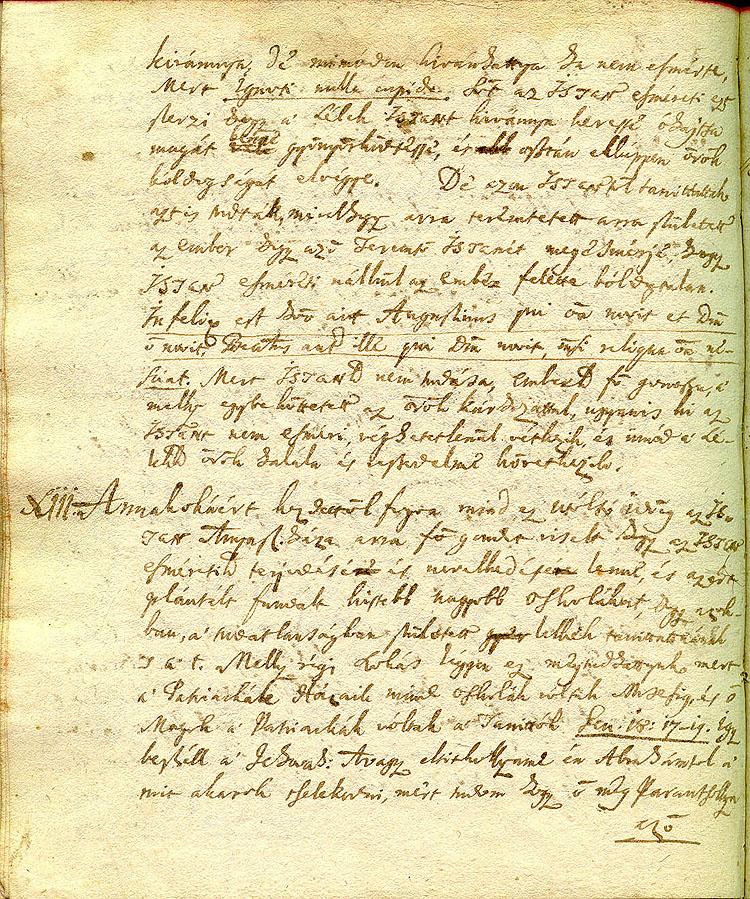 kivánnya. De mimodon kivánhattya ha nem esmérte,
Mert Ignoti nulla cupido. Sőt az ISTEN esméreti
hogy a' Lélek ISTENT kivánnya keressé óhajtsa
magát gyönyörködtessé, és osztán ekképpen örök
bóldogságát elvégye. De azon ISTENTŐL taníttattak
azt is tudták, mivelhogy arra teremtetett arra született
az ember hogy az ő Teremtő ISTENÉT megesmérje, hogy
ISTEN esméreti nálkül az ember felette bóldogtalan.
Infelix est Homo ait Augustinus qui omnia novit et Deum
non novit, Beatus autem ille qui Deum novit, nisi reliqua omnia ne-
sciat. Mert ISTENT nem tudása, embernek fő gonossza, a'
melly egybe köttetett az örök kárhozattal, ugyanis ki az
ISTENT nem esméri, véghetetlenül vétkezik, és annak a' Le-
lekre örök halála és következik.
XIII. Annakokáért kezdettől fogva mind ez utólsó üdőig az IS-
TEN Anyasz. háza arra fő gondot viselt hogy az ISTEN
esméretinek terjedésére és nevelkedésére lenne, és azért
plántált fundált kissebb nagyobb Oskolákat, hogy azok-
ban, a' tudatlanságban született lelkek taníttatnának
s a' t. Melly régi szokás légyen ez megtudhattyuk mert
a' Patriarcháké Házaik mind Oskolák vóltak Mosesig, és ő
Magok a' Patriarchák vóltak a' Tanítók Gen. 18: 17-19. Így
beszéll a' Jehovah: Avagy eltitkollyamé én Abrahámtol a'
mit akarok tselekedni, mert tudom hogy ő még Parantsollya
az ő